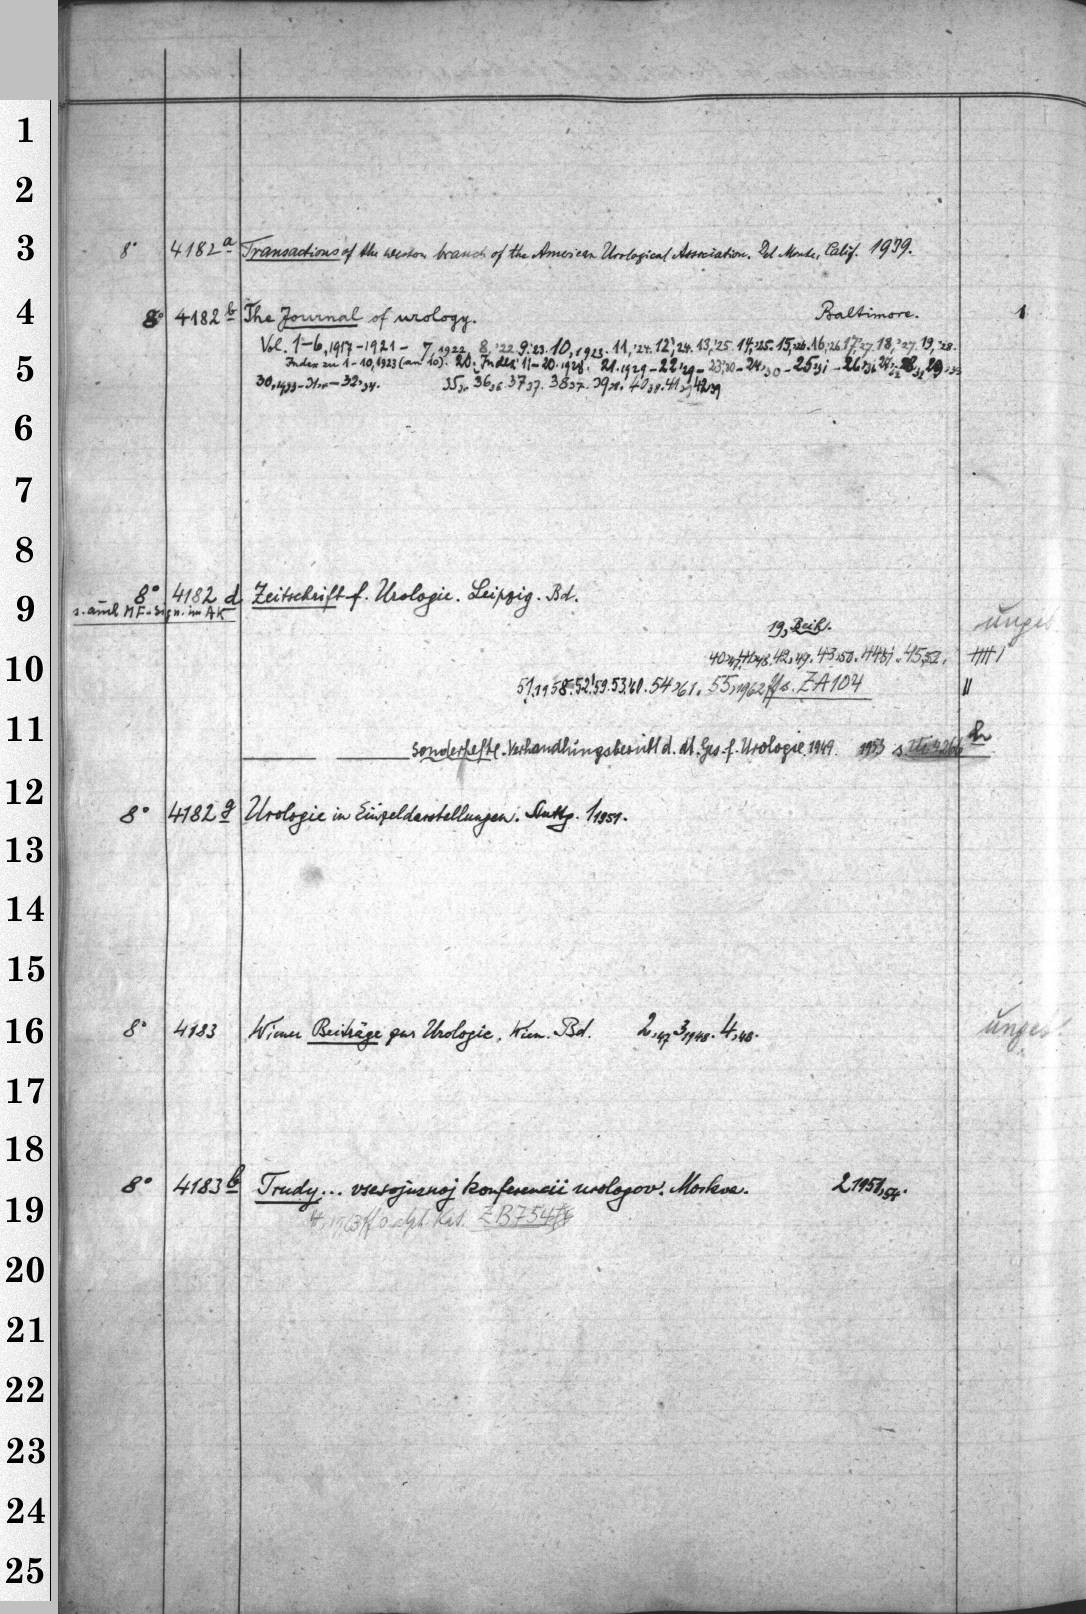 1
2
3
8° 4182 a Transactions of the western branch of the American Urological Association. Del Monte, Calif. 1939.
4
8° 4182 b The Journal of urology. Baltimore. 1
Vol. 1–6, 1917–1921 – 7, 1922. 8, '22. 9, '23. 10, 1923. 11, '24. 12, '24. 13, '25. 14, '25. 15, '26. 16, '26. 17, '27. 18, '27. 19, '28.
5
Index zu 1–10, 1923 (an 10). 20. Index 11–20. 1928. 21. 1929 – 22, 29 – 23, 30 – 24, 30 – 25, 31 – 26, 31 28, 32 29, 33
30, 1933 – 31 – 32, 34. 35, 36, 36 37, 37. 38, 37. 39, 38. 40, 38. 41, 39 42, 39
6
7
8
8° 4182 d Zeitschrift f. Urologie. Leipzig. Bd.
9
s. auch MF-Sign. im AK
19, Beih. unges
10
40, 47, 41, 48. 42, 49. 43, 50. 44, 51. 45, 52.
51, 1958. 52, '59. 53, '60. 54, 61. 55, 1962 ff s. ZA 104
11
Sonderhefte. Verhandlungsbericht d. dt. Ges. f. Urologie. 1949. 1953 s
12
8° 4182 g Urologie in Einzeldarstellungen. Stuttg. 1, 1951.
13
14
15
16
8° 4183 Wiener Beiträge zur Urologie. Wien. Bd. 2, 47 3, 1948. 4, 48. unges
17
18
8° 4183 b Trudy... vsesojuznoj konferencii urologov. Moskva. 2. 1951, 54.
19
4, 1963 ff s. alph. Kat. ZB 754
20
21
22
23
24
25